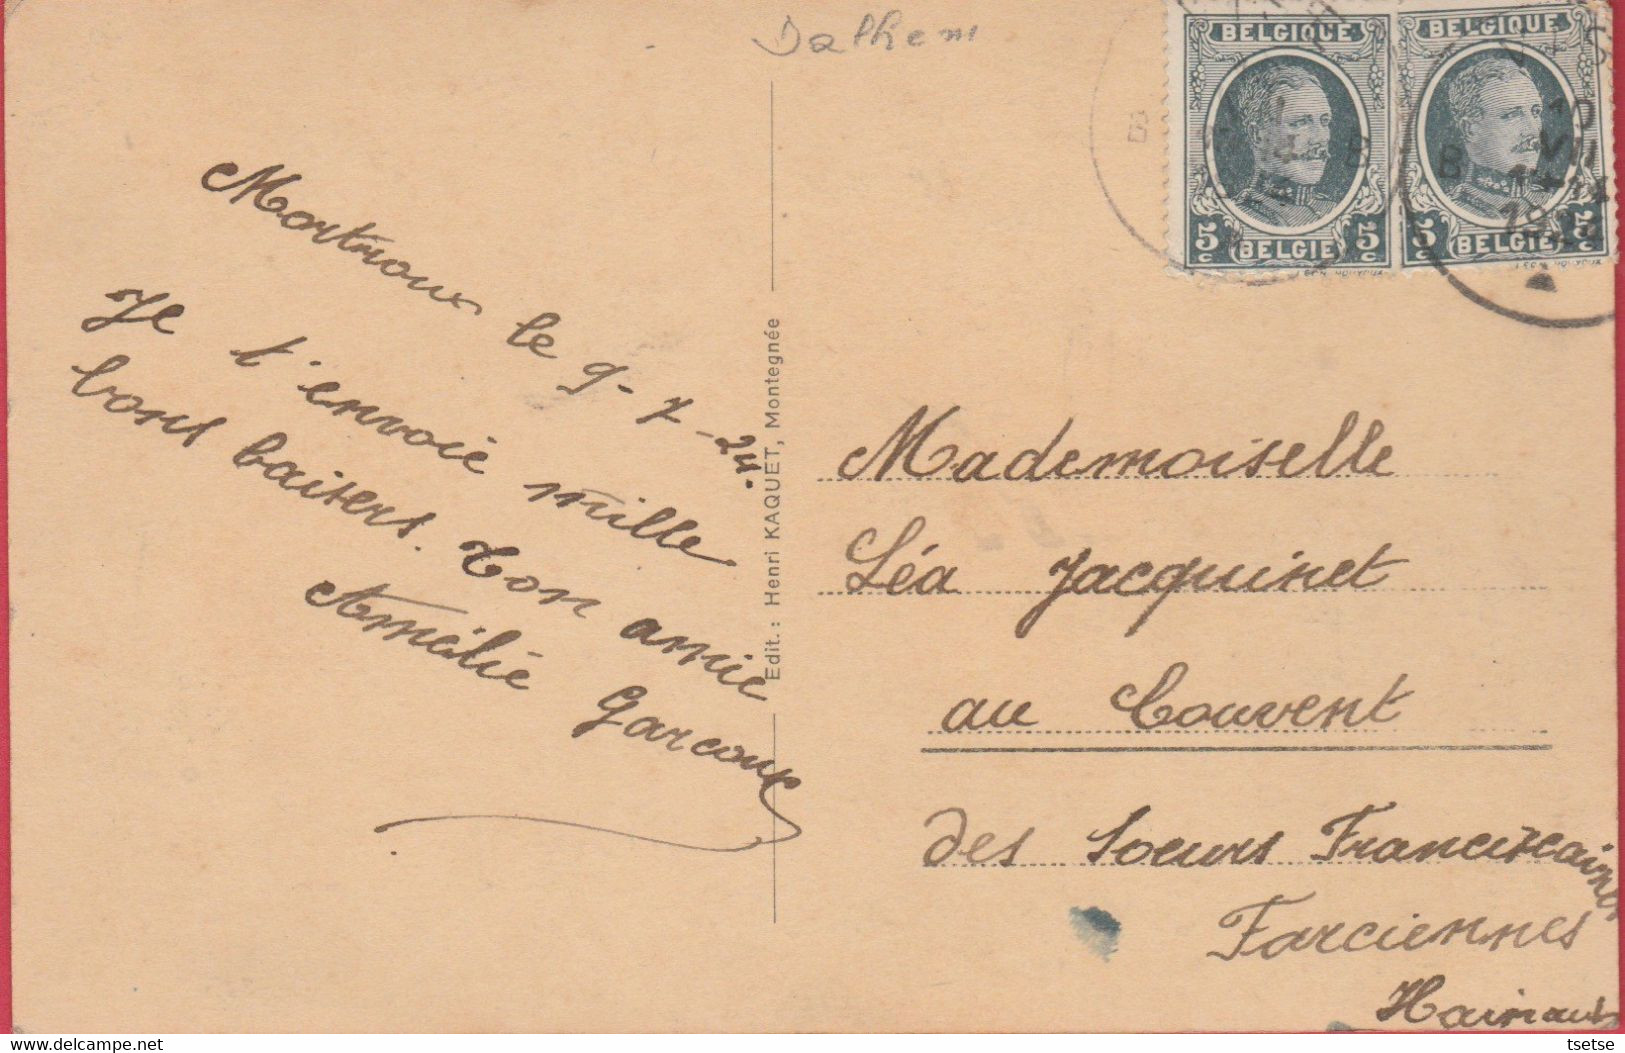 Dalhem
BELGIQUE BELGIQUE
5c BELGIË 5c 5c BELGIË 5c
10
VII
Mortroux le 9-7-24.
Je t'envoie mille
bons baisers. Ton amie
Amélie Garcoux
Edit.: Henri KAQUET, Montegnée
Mademoiselle
Léa Jacquinet
au Couvent
des Soeurs Franciscaines
Farciennes
Hainaut
tsetse
delcampe.net